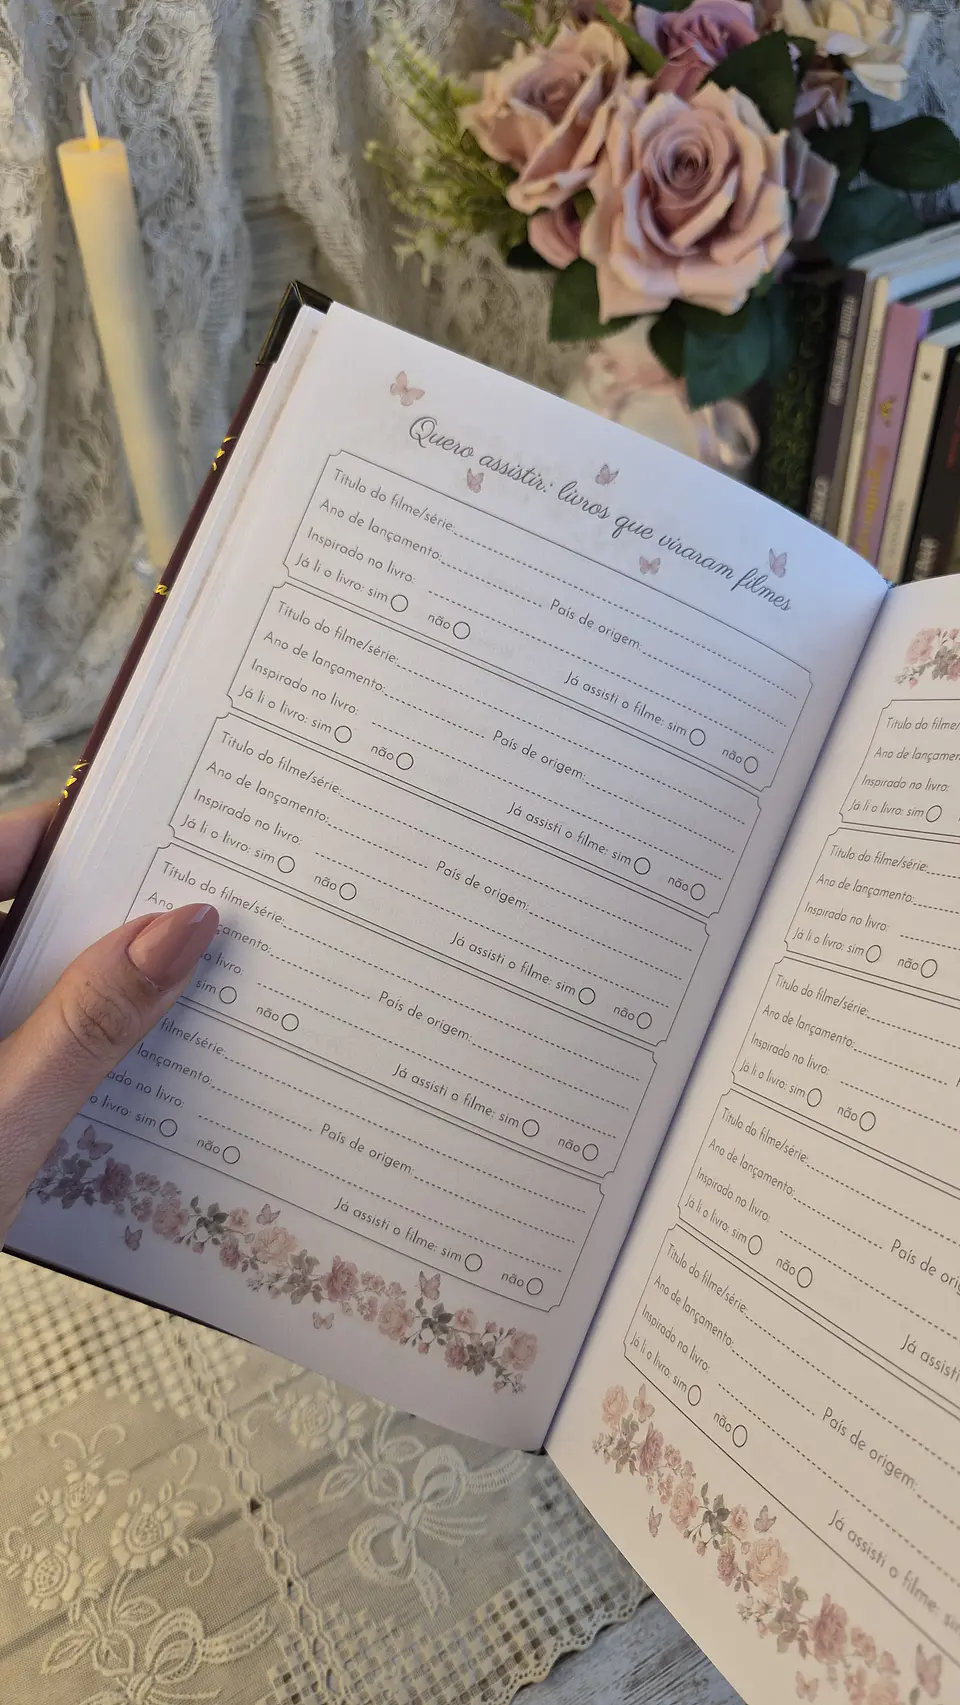 Quero assistir: livros que viraram filmes
Título do filme/série:
Ano de lançamento: País de origem:
Inspirado no livro:
Já li o livro: sim não Já assisti o filme: sim não
Título do filme/série:
Ano de lançamento: País de origem:
Inspirado no livro:
Já li o livro: sim não Já assisti o filme: sim não
Título do filme/série:
Ano de lançamento: País de origem:
Inspirado no livro:
Já li o livro: sim não Já assisti o filme: sim não
Título do filme/série:
Ano çamento: País de origem:
o livro:
sim não Já assisti o filme: sim não
filme/série:
lançamento: País de origem:
ado no livro:
o livro: sim não Já assisti o filme: sim não
Título do filme/
Ano de lançamen
Inspirado no livro:
Já li o livro: sim
Título do filme/série:
Ano de lançamento:
Inspirado no livro:
Já li o livro: sim não
Título do filme/série:
Ano de lançamento:
Inspirado no livro:
Já li o livro: sim não
Título do filme/série:
Ano de lançamento: País de orig
Inspirado no livro:
Já li o livro: sim não Já assisti
Título do filme/série:
Ano de lançamento: País de origem:
Inspirado no livro:
Já li o livro: sim não Já assisti o filme: sim